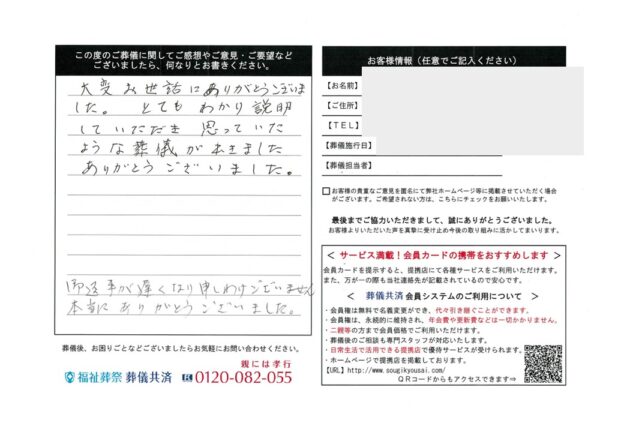 この度のご葬儀に関してご感想やご意見・ご要望など
ございましたら、何なりとお書きください。
大変お世話にありがとうござい
ました。とてもわかり説明
していただき 思っていた
ような葬儀が出きました
ありがとうございました。
御返事が遅くなり申しわけございません
本当にありがとうございました。
葬儀後、お困りごとなどございましたらお気軽にお問い合わせください。
親には孝行
福祉葬祭 葬儀共済 0120-082-055
お客様情報（任意でご記入ください）
【お名前】
【ご住所】
【ＴＥＬ】
【葬儀施行日】
【葬儀担当者】
□お客様の貴重なご意見を匿名にて弊社ホームページ等に掲載させていただく場合
がございます。ご希望されない方は、こちらにチェックをお願いいたします。
最後までご協力いただきまして、誠にありがとうございました。
お客様よりいただいた声を真摯に受け止め今後の取り組みに活かしてまいります。
＜ サービス満載！会員カードの携帯をおすすめします ＞
会員カードを提示すると、提携店にて各種サービスをご利用いただけます。
また、万が一の際も当社連絡先が記載されているので安心です。
＜ 葬儀共済 会員システムのご利用について ＞
・会員権は無料で名義変更ができ、代々引き継ぐことができます。
・会員権は、永続的に維持され、年会費や更新費などは一切かかりません。
・二親等の方まで会員価格でご利用いただけます。
・葬儀後のご相談も専門スタッフが対応いたします。
・日常生活で活用できる提携店で優待サービスが受けられます。
・ホームページで提携店を掲載しております。
【URL】http://www.sougikyousai.com/
ＱＲコードからもアクセスできます⇒